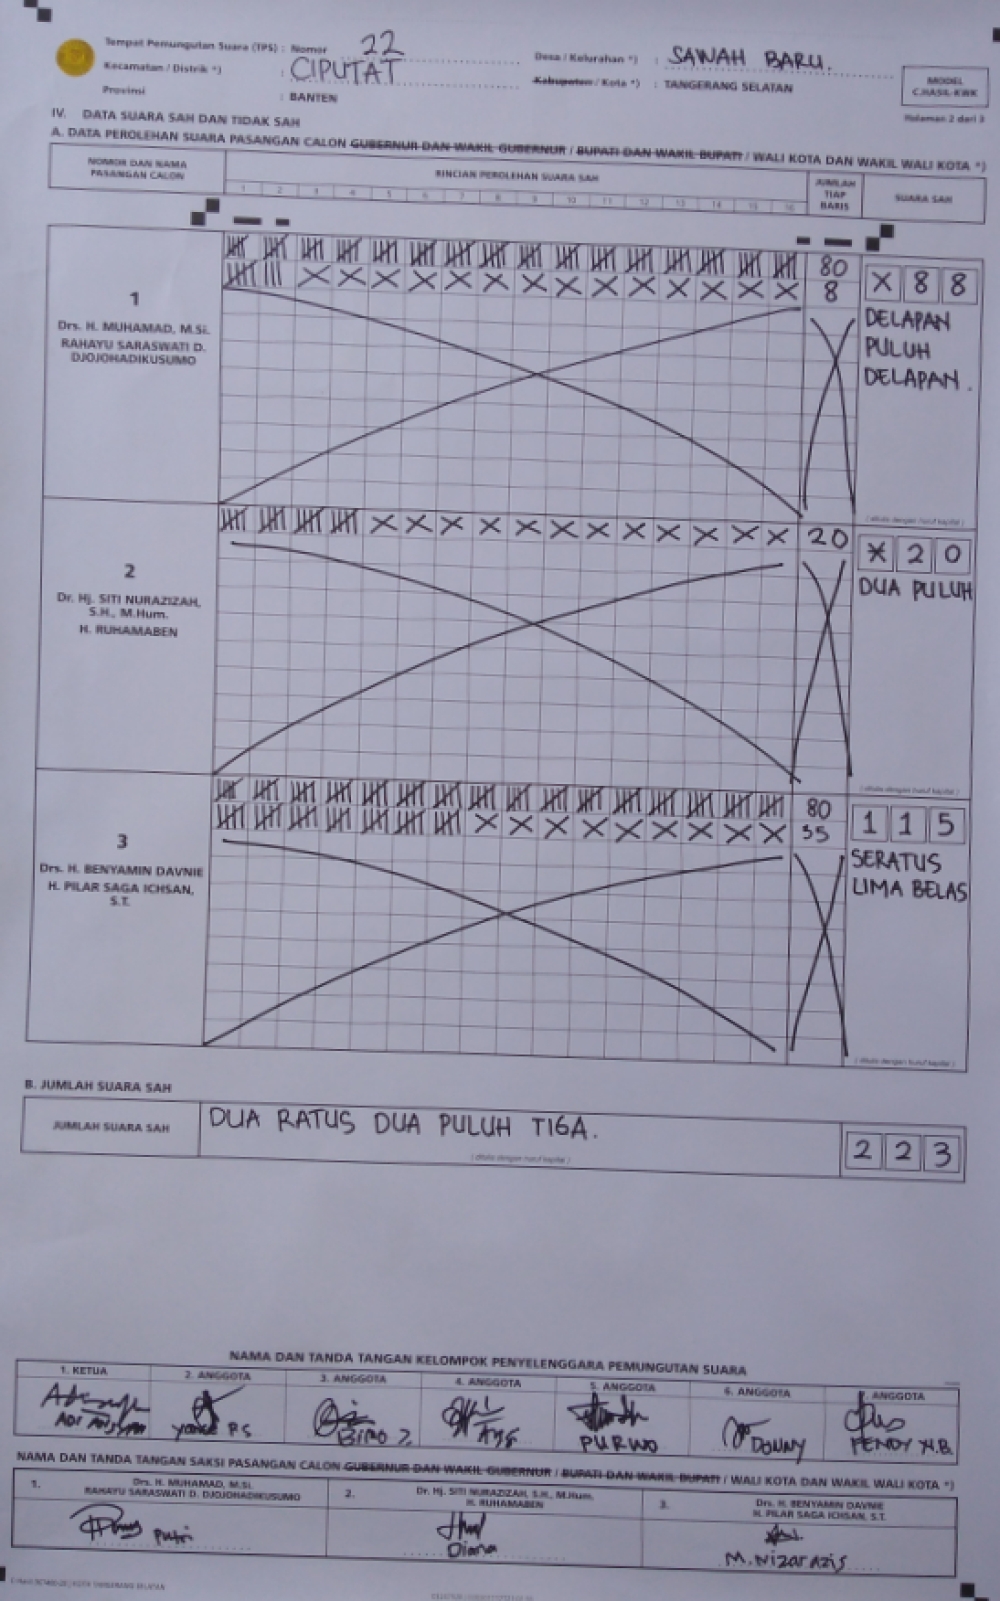 Tempat Pemungutan Suara (TPS) : Nomor 22
Desa / Kelurahan *) : SAWAH BARU.
Kecamatan / Distrik *) : CIPUTAT
Kabupaten / Kota *) : TANGERANG SELATAN
Provinsi : BANTEN
MODEL
C.HASIL-KWK
Halaman 2 dari 3
IV. DATA SUARA SAH DAN TIDAK SAH
A. DATA PEROLEHAN SUARA PASANGAN CALON GUBERNUR DAN WAKIL GUBERNUR / BUPATI DAN WAKIL BUPATI / WALI KOTA DAN WAKIL WALI KOTA *)
NOMOR DAN NAMA
PASANGAN CALON
RINCIAN PEROLEHAN SUARA SAH
1 2 3 4 5 6 7 8 9 10 11 12 13 14 15 16
JUMLAH
TIAP
BARIS
SUARA SAH
1
Drs. H. MUHAMAD, M.Si.
RAHAYU SARASWATI D.
DJOJOHADIKUSUMO
80
8
X 8 8
DELAPAN
PULUH
DELAPAN.
( ditulis dengan huruf kapital )
2
Dr. Hj. SITI NURAZIZAH,
S.H., M.Hum.
H. RUHAMABEN
20
X 2 0
DUA PULUH
( ditulis dengan huruf kapital )
3
Drs. H. BENYAMIN DAVNIE
H. PILAR SAGA ICHSAN,
S.T.
80
35
1 1 5
SERATUS
LIMA BELAS
( ditulis dengan huruf kapital )
B. JUMLAH SUARA SAH
JUMLAH SUARA SAH
DUA RATUS DUA PULUH TIGA.
( ditulis dengan huruf kapital )
2 2 3
NAMA DAN TANDA TANGAN KELOMPOK PENYELENGGARA PEMUNGUTAN SUARA
1. KETUA
2. ANGGOTA
3. ANGGOTA
4. ANGGOTA
5. ANGGOTA
6. ANGGOTA
ANGGOTA
PURWO
DONNY
NAMA DAN TANDA TANGAN SAKSI PASANGAN CALON GUBERNUR DAN WAKIL GUBERNUR / BUPATI DAN WAKIL BUPATI / WALI KOTA DAN WAKIL WALI KOTA *)
1. Drs. H. MUHAMAD, M.Si.
RAHAYU SARASWATI D. DJOJOHADIKUSUMO
2. Dr. Hj. SITI NURAZIZAH, S.H., M.Hum.
H. RUHAMABEN
3. Drs. H. BENYAMIN DAVNIE
H. PILAR SAGA ICHSAN, S.T.
Putri
Diana
M. Nizar azis